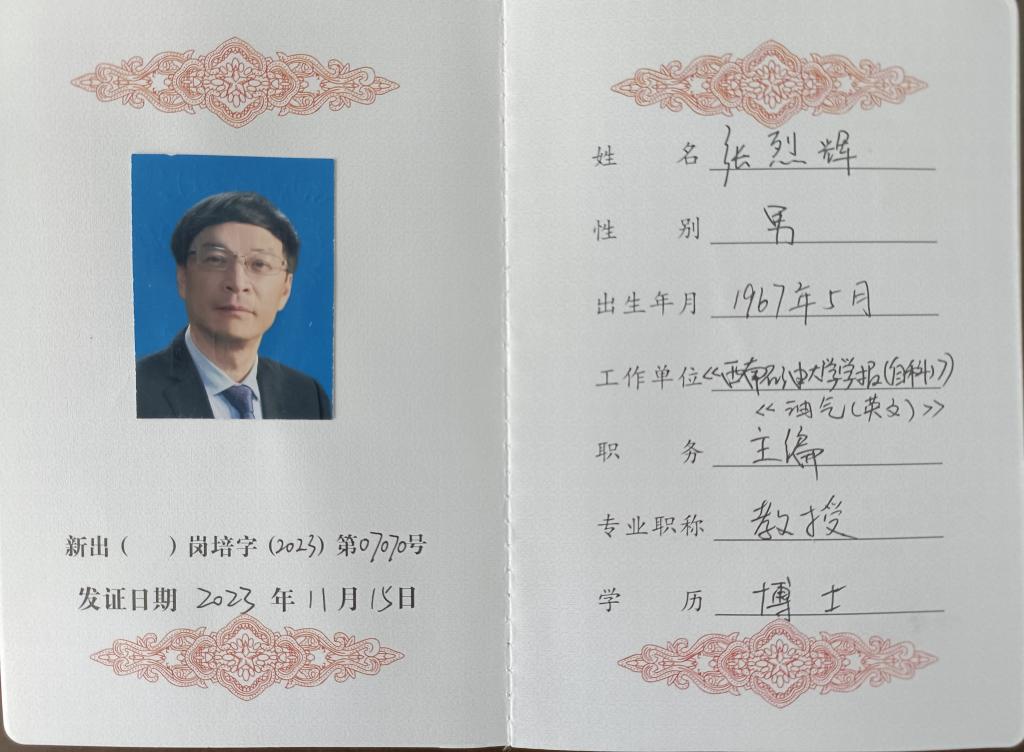 新出（ ）岗培字（2023）第07070号
发证日期 2023 年 11 月 15 日
姓 名 张烈辉
性 别 男
出生年月 1967年5月
工作单位 《西南石油大学学报（自科）》
《油气（英文）》
职 务 主编
专业职称 教授
学 历 博士